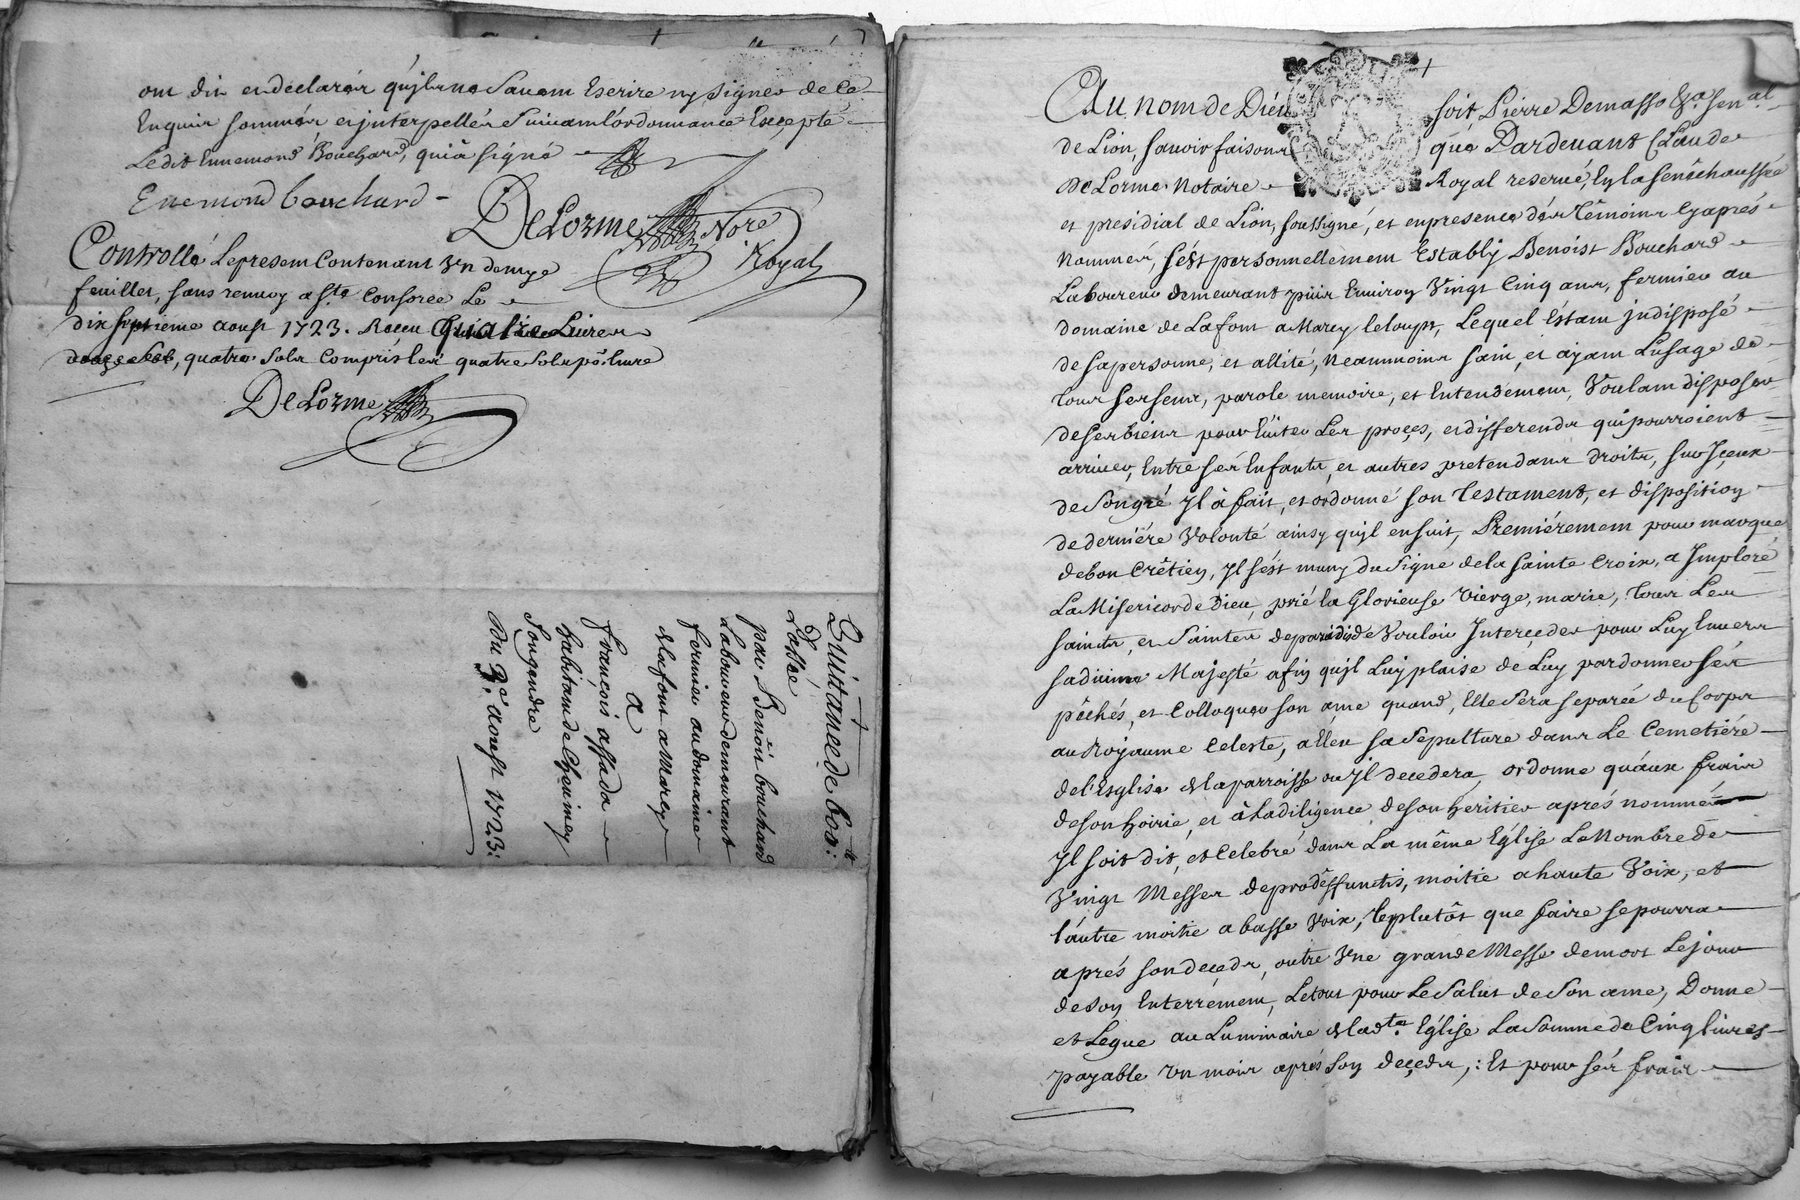 ont dit et declarér qu'jls ne Sauent Escrire ny signer de ce
Enquis sommér et jnterpellér Suiuant l'ordonnance Excepté
Ledit Ennemond Bouchard, qui à signé
Enemond bouchard
DeLorme Nore Royal
Controllé Lepresent Contenant Vn demye
feuillet, sans renuoy a St. Consorce Le
dix septieme aoust 1723. Receu quatre Liures
quatre Sols Compris Les quatre Sols pr
DeLorme
Quittance de
par Benoit bouchard
Laboureur demeurant
fermier au domaine
de lafont a Marcy
A
françois assada
habitant de Cheuiney
Songendre
Du 3e. aoust 1723:
Au nom de Dieu soit, Pierre Demasso Ecr. Senal
de Lion, sauoir faisons que Pardeuant Claude
DeLorme Notaire Royal reserué, En la Senéchaussée
et presidial de Lion, soussigné, et en presence dés témoins Cy aprés
Nommér, s'ést personnellement Establÿ Benoist Bouchard
Laboureur demeurant puis Enuiron Vingt Cinq ans, fermier au
domaine de Lafont a Marcy leloups, Lequel Éstant jndisposé
de sa personne, et allité, Neanmoins sain, et ayant Lusage de
tous ses sens, parole memoire, et Entendement, Voulant disposer
de ses biens pour Éuiter Les proçes, et differends qui pourroient
arriuer, Entre sés Enfants, et autres pretendans droits, sur jçeux
de Son gré Jl à fait, et ordonné son Testament, et disposition
de derniére Volonté ainsy qu'jl ensuit, Premiérement pour marque
de bon Crêtien, Jl s'ést muny du Signe de la Sainte Croix, a Jmploré
La Misericorde Dieu, prié la Glorieuse Vierge, marie, tous Les
saints, et Saintes de paradis de Vouloir Jnterçeder pour Luy Enuers
sa diuine Majesté afin qu'jl Luÿ plaise de Luy pardonner sés
pêchés, et Colloquer son ame quand, Elle Sera separée du Corps
au Royaume Celeste, a Élеu sa Sepulture dans Le Cemetiére
de l'Esglise de la parroisse ou Jl decedera, ordonne qu'aux frais
de son hoirie, et à la diligence de son heritier aprés nommé
Jl soit dit, et Celebré dans La même Eglise Le Nombre de
Vingt Messes de pro déffunctis, moitie a haute Voix, et
l'autre moitie a basse Voix, le plutôt que faire se pourra
aprés son deçeds, outre Vne grande Messe de mort Le jour
de Son Enterrément, Le tout pour Le Salut de Son ame, Donne
et Legue au Luminaire de ladte. Eglise La Somme de Cinq liures
payable Vn mois aprés Son deçeds,: Et pour sés frais